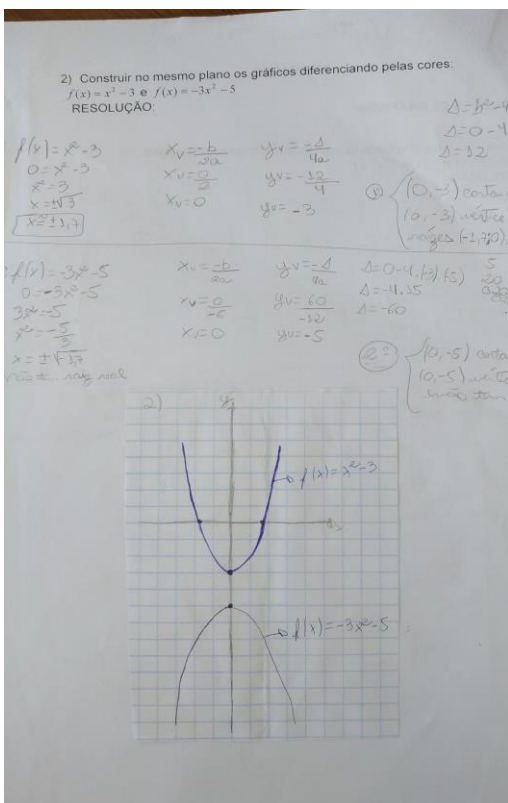 2) Construir no mesmo plano os gráficos diferenciando pelas cores:
f(x) = x² − 3 e f(x) = −3x² − 5
RESOLUÇÃO:
f(x) = x² - 3
0 = x² - 3
x² = 3
x = ±√3
x = ± 1,7
xv = -b/2a
xv = 0/2
xv = 0
yv = -Δ/4a
yv = -12/4
yv = -3
Δ = b² - 4
Δ = 0 - 4
Δ = 12
(0, -3) corta
(0, -3) vértice
raízes (-1,7;0),
f(x) = -3x² - 5
0 = -3x² - 5
3x² = -5
x² = -5/3
x = ± √-1,7
raiz real
xv = -b/2a
xv = 0/-6
xv = 0
yv = -Δ/4a
yv = 60/-12
yv = -5
Δ = 0 - 4.(-3).(-5)
Δ = -4.15
Δ = -60
2ª
(0, -5) corta
(0, -5) vértice
não tem
2)
y
f(x) = x² - 3
x
f(x) = -3x² - 5